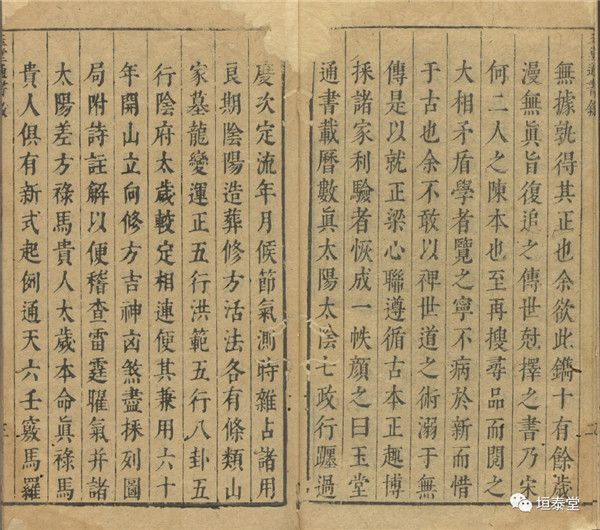 無據孰得其正也余欲此鐫十有餘歲
漫無眞旨復追之傳世尅擇之書乃宋
何二人之陳本也至再搜尋品而閱之
大相矛盾學者覽之寧不病於新而惜
于古也余不敢以裨世道之術溺于無
傳是以就正梁心聯遵循古本正趣博
採諸家利驗者恢成一帙顏之曰玉堂
通書載曆數眞太陽太陰七政行躔過
慶次定流年月候節氣測時雜占諸用
良期陰陽造葬修方活法各有條類山
家墓龍變運正五行洪範五行八卦五
行陰府太歲較定相連便其兼用六十
年開山立向修方吉神凶煞盡採列圖
局附詩註解以便稽查雷霆氣并諸
太陽差方祿馬貴人太歲本命眞祿馬
貴人俱有新式起例通天六壬竅馬羅
垣泰堂